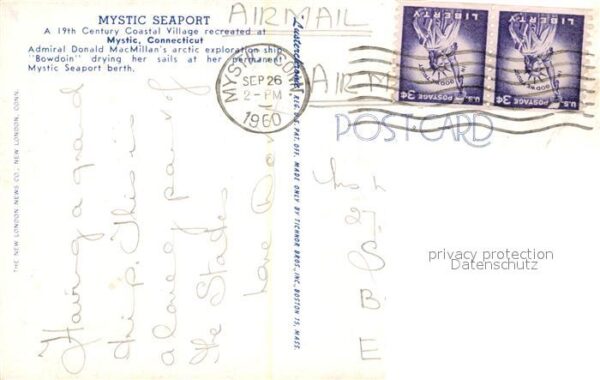 MYSTIC SEAPORT
A 19th Century Coastal Village recreated at
Mystic, Connecticut
Admiral Donald MacMillan's arctic exploration ship
"Bowdoin" drying her sails at her permanent
Mystic Seaport berth.
AIRMAIL
AIRM
MYSTIC, CONN.
SEP 26
2-PM
1960
LIBERTY
U.S. POSTAGE 3¢
LIBERTY
U.S. POSTAGE 3¢
POST CARD
THE NEW LONDON NEWS CO., NEW LONDON, CONN.
REG. U.S. PAT. OFF. MADE ONLY BY TICHNOR BROS., INC., BOSTON 15, MASS.
Having a grand
trip. This is
a lovely part of
the States
Love
27
S
B
E
privacy protection
Datenschutz